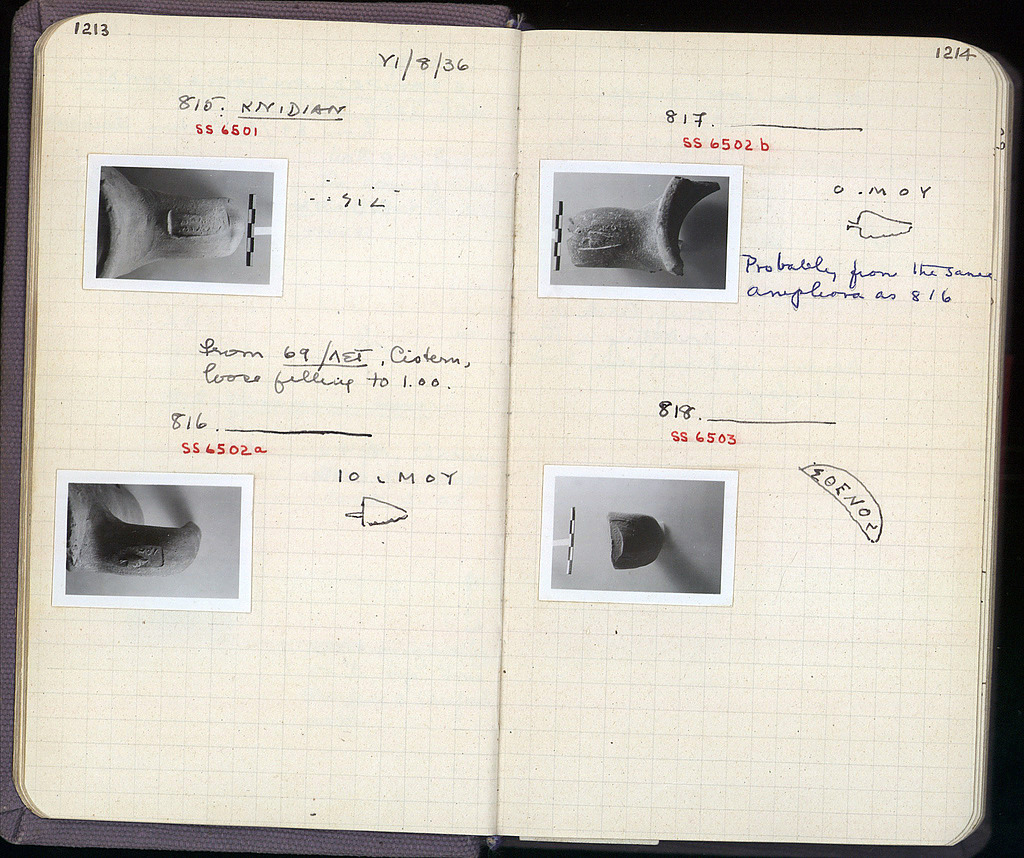 1213
VI/8/36
815. KNIDIAN
SS 6501
From 69/ΛΣΤ, Cistern,
loose filling to 1.00.
816.
SS 6502a
10 . MOY
1214
817.
SS 6502 b
O . MOY
Probably from the same
amphora as 816
818.
SS 6503
ΣΘΕΝΟΣ